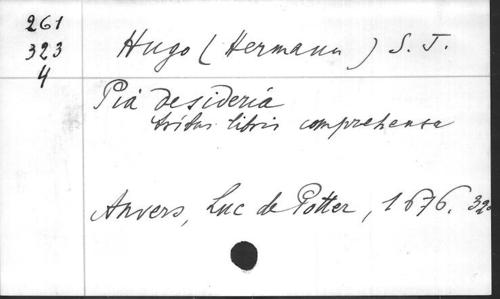 261
323
4
Hugo (Hermann) S. J.
Pia desideria
tribus libris comprehensa
Anvers, Luc de Potter, 1676. 32º